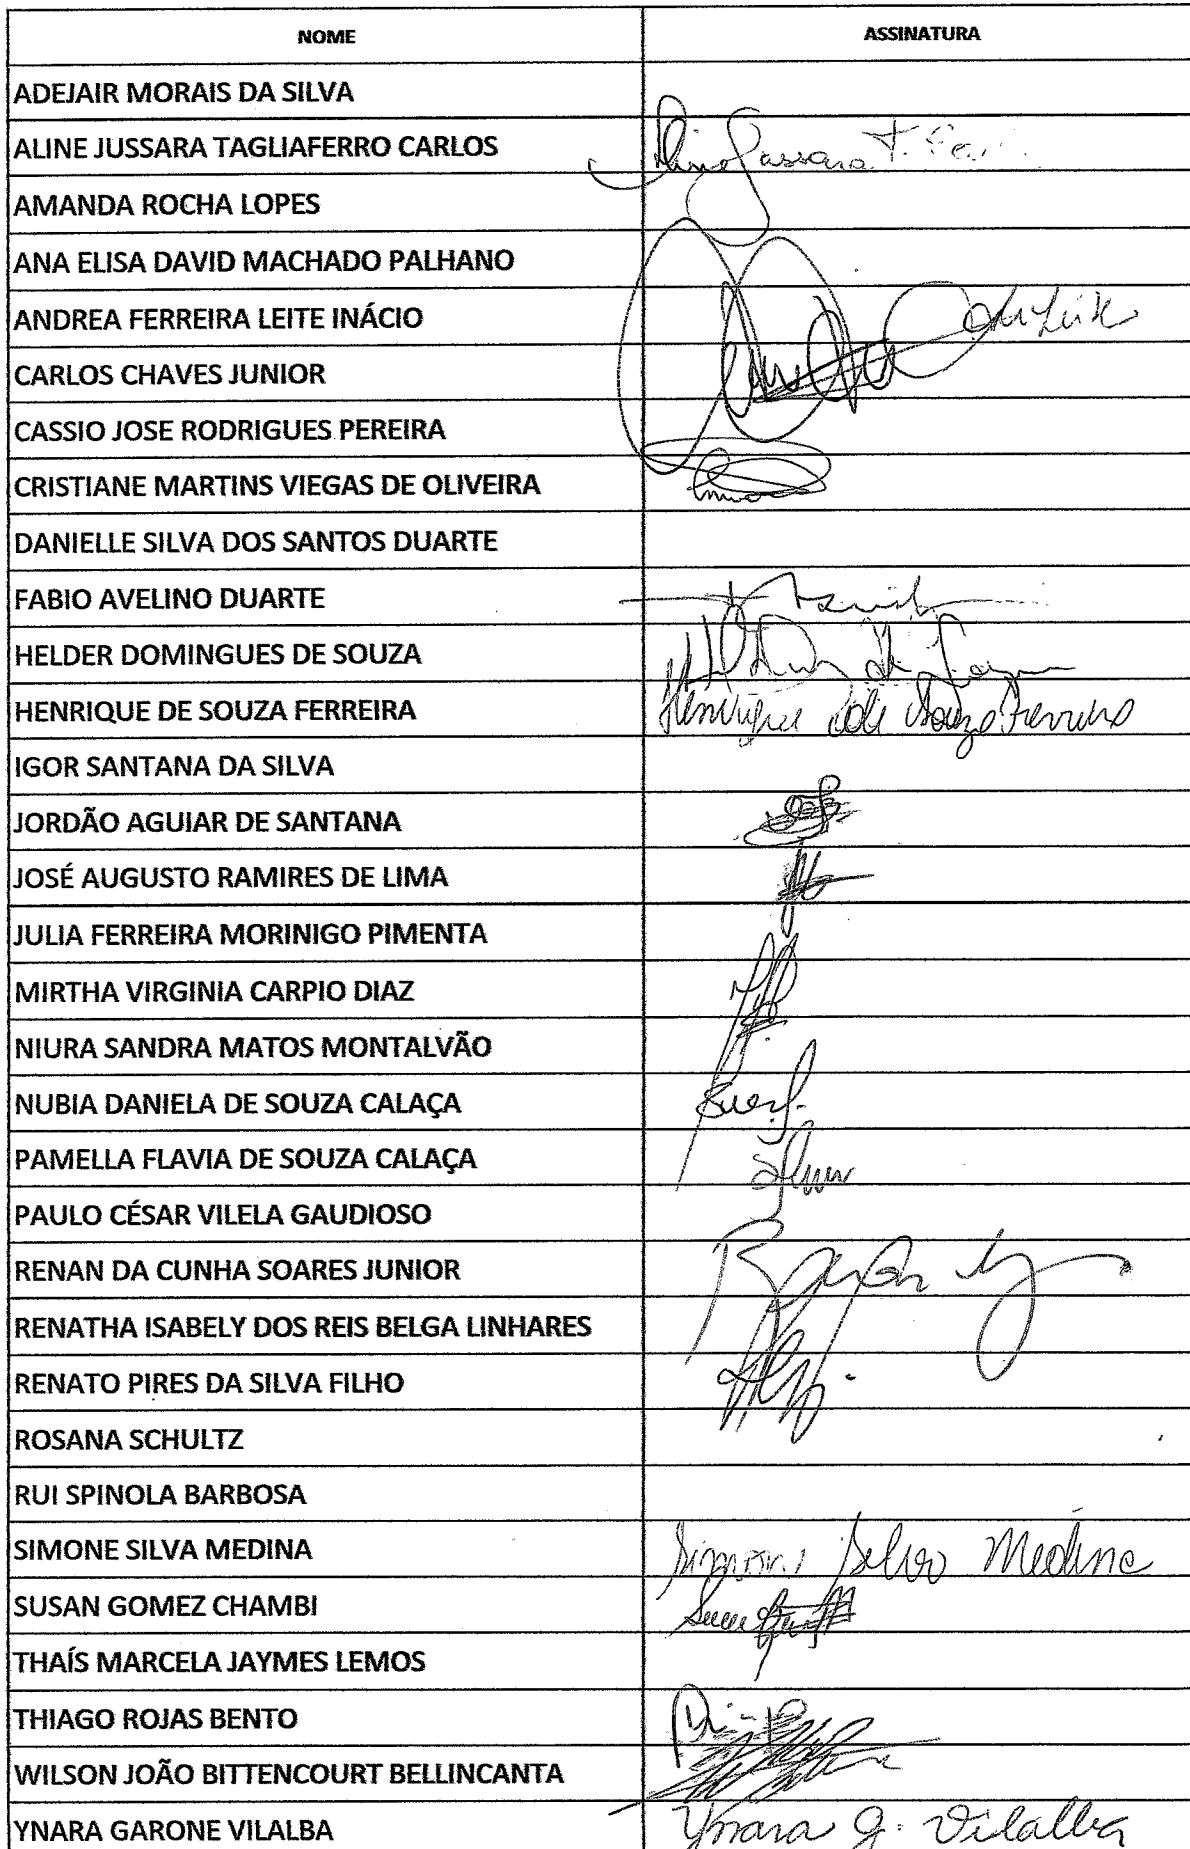 NOME ASSINATURA
ADEJAIR MORAIS DA SILVA
ALINE JUSSARA TAGLIAFERRO CARLOS Aline Jussara T.
AMANDA ROCHA LOPES
ANA ELISA DAVID MACHADO PALHANO
ANDREA FERREIRA LEITE INÁCIO
CARLOS CHAVES JUNIOR
CASSIO JOSE RODRIGUES PEREIRA
CRISTIANE MARTINS VIEGAS DE OLIVEIRA
DANIELLE SILVA DOS SANTOS DUARTE
FABIO AVELINO DUARTE
HELDER DOMINGUES DE SOUZA
HENRIQUE DE SOUZA FERREIRA Henrique de Souza Ferreira
IGOR SANTANA DA SILVA
JORDÃO AGUIAR DE SANTANA
JOSÉ AUGUSTO RAMIRES DE LIMA
JULIA FERREIRA MORINIGO PIMENTA
MIRTHA VIRGINIA CARPIO DIAZ
NIURA SANDRA MATOS MONTALVÃO
NUBIA DANIELA DE SOUZA CALAÇA
PAMELLA FLAVIA DE SOUZA CALAÇA
PAULO CÉSAR VILELA GAUDIOSO
RENAN DA CUNHA SOARES JUNIOR
RENATHA ISABELY DOS REIS BELGA LINHARES
RENATO PIRES DA SILVA FILHO
ROSANA SCHULTZ
RUI SPINOLA BARBOSA
SIMONE SILVA MEDINA Simone Silva Medina
SUSAN GOMEZ CHAMBI
THAÍS MARCELA JAYMES LEMOS
THIAGO ROJAS BENTO
WILSON JOÃO BITTENCOURT BELLINCANTA
YNARA GARONE VILALBA Ynara G. Vilalba